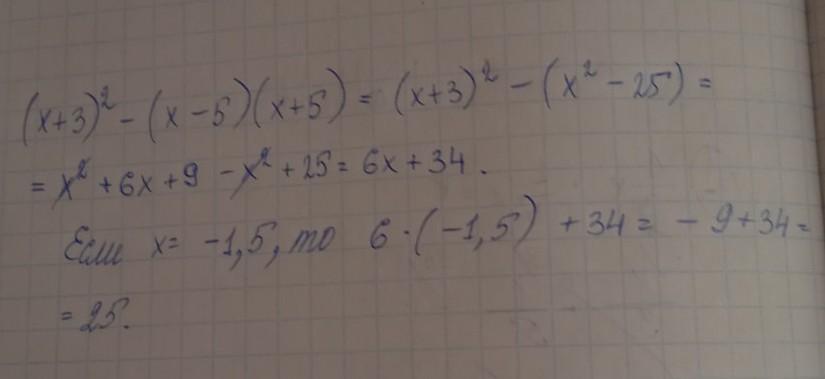 (x+3)² - (x-5)(x+5) = (x+3)² - (x² - 25) =
= x² + 6x + 9 - x² + 25 = 6x + 34.
Если x = -1,5, то 6 · (-1,5) + 34 = - 9 + 34 =
= 25.